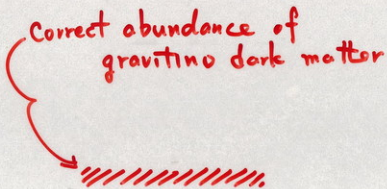 Correct abundance of
gravitino dark matter